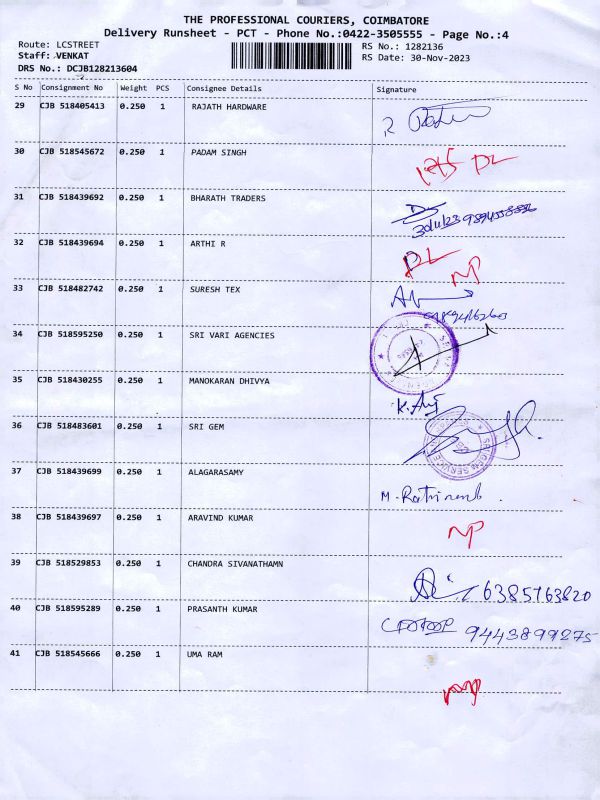 THE PROFESSIONAL COURIERS, COIMBATORE
Delivery Runsheet - PCT - Phone No.:0422-3505555 - Page No.:4
Route: LCSTREET
RS No.: 1282136
Staff: VENKAT
RS Date: 30-Nov-2023
DRS No.: DCJB128213604
S No Consignment No Weight PCS Consignee Details Signature
29 CJB 518405413 0.250 1 RAJATH HARDWARE
30 CJB 518545672 0.250 1 PADAM SINGH
31 CJB 518439692 0.250 1 BHARATH TRADERS
30/11/23
32 CJB 518439694 0.250 1 ARTHI R
DL
33 CJB 518482742 0.250 1 SURESH TEX
34 CJB 518595250 0.250 1 SRI VARI AGENCIES
35 CJB 518430255 0.250 1 MANOKARAN DHIVYA
36 CJB 518483601 0.250 1 SRI GEM
37 CJB 518439699 0.250 1 ALAGARASAMY
38 CJB 518439697 0.250 1 ARAVIND KUMAR
NP
39 CJB 518529853 0.250 1 CHANDRA SIVANATHAMN
6385763820
40 CJB 518595289 0.250 1 PRASANTH KUMAR
9443899275
41 CJB 518545666 0.250 1 UMA RAM